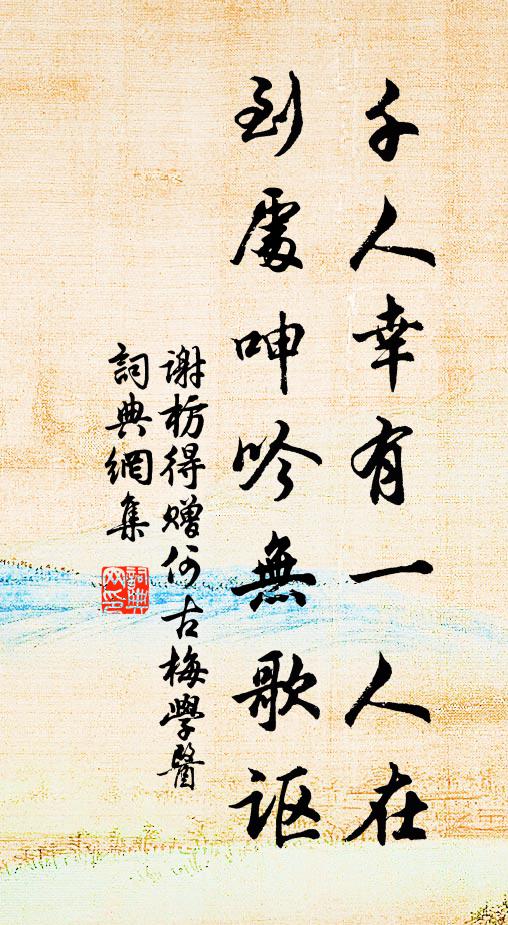 千人幸有一人在
到處呻吟無歌讴
谢枋得赠何古梅學醫
詞典網集
詞典网印